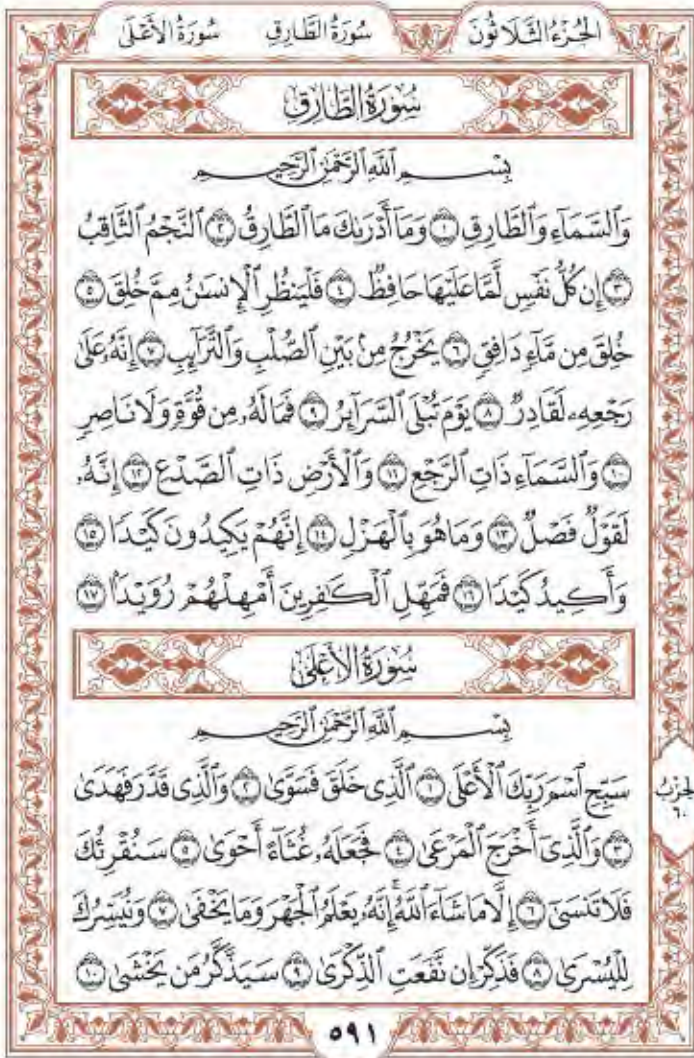 الجُزْءُ الثَّلَاثُونَ سُورَةُ الطَّارِقِ سُورَةُ الأَعْلَىٰ
سُورَةُ الطَّارِقِ
بِسْمِ ٱللَّهِ ٱلرَّحْمَٰنِ ٱلرَّحِيمِ
وَٱلسَّمَآءِ وَٱلطَّارِقِ ١ وَمَآ أَدْرَىٰكَ مَا ٱلطَّارِقُ ٢ ٱلنَّجْمُ ٱلثَّاقِبُ
٣ إِن كُلُّ نَفْسٍ لَّمَّا عَلَيْهَا حَافِظٌ ٤ فَلْيَنظُرِ ٱلْإِنسَٰنُ مِمَّ خُلِقَ ٥
خُلِقَ مِن مَّآءٍ دَافِقٍ ٦ يَخْرُجُ مِنۢ بَيْنِ ٱلصُّلْبِ وَٱلتَّرَآئِبِ ٧ إِنَّهُۥ عَلَىٰ
رَجْعِهِۦ لَقَادِرٌ ٨ يَوْمَ تُبْلَى ٱلسَّرَآئِرُ ٩ فَمَا لَهُۥ مِن قُوَّةٍ وَلَا نَاصِرٍ
١٠ وَٱلسَّمَآءِ ذَاتِ ٱلرَّجْعِ ١١ وَٱلْأَرْضِ ذَاتِ ٱلصَّدْعِ ١٢ إِنَّهُۥ
لَقَوْلٌ فَصْلٌ ١٣ وَمَا هُوَ بِٱلْهَزْلِ ١٤ إِنَّهُمْ يَكِيدُونَ كَيْدًا ١٥
وَأَكِيدُ كَيْدًا ١٦ فَمَهِّلِ ٱلْكَٰفِرِينَ أَمْهِلْهُمْ رُوَيْدًۢا ١٧
سُورَةُ الأَعْلَىٰ
بِسْمِ ٱللَّهِ ٱلرَّحْمَٰنِ ٱلرَّحِيمِ
سَبِّحِ ٱسْمَ رَبِّكَ ٱلْأَعْلَى ١ ٱلَّذِى خَلَقَ فَسَوَّىٰ ٢ وَٱلَّذِى قَدَّرَ فَهَدَىٰ
الحِزْبُ
٦٠
٣ وَٱلَّذِىٓ أَخْرَجَ ٱلْمَرْعَىٰ ٤ فَجَعَلَهُۥ غُثَآءً أَحْوَىٰ ٥ سَنُقْرِئُكَ
فَلَا تَنسَىٰٓ ٦ إِلَّا مَا شَآءَ ٱللَّهُ ۚ إِنَّهُۥ يَعْلَمُ ٱلْجَهْرَ وَمَا يَخْفَىٰ ٧ وَنُيَسِّرُكَ
لِلْيُسْرَىٰ ٨ فَذَكِّرْ إِن نَّفَعَتِ ٱلذِّكْرَىٰ ٩ سَيَذَّكَّرُ مَن يَخْشَىٰ ١٠
٥٩١